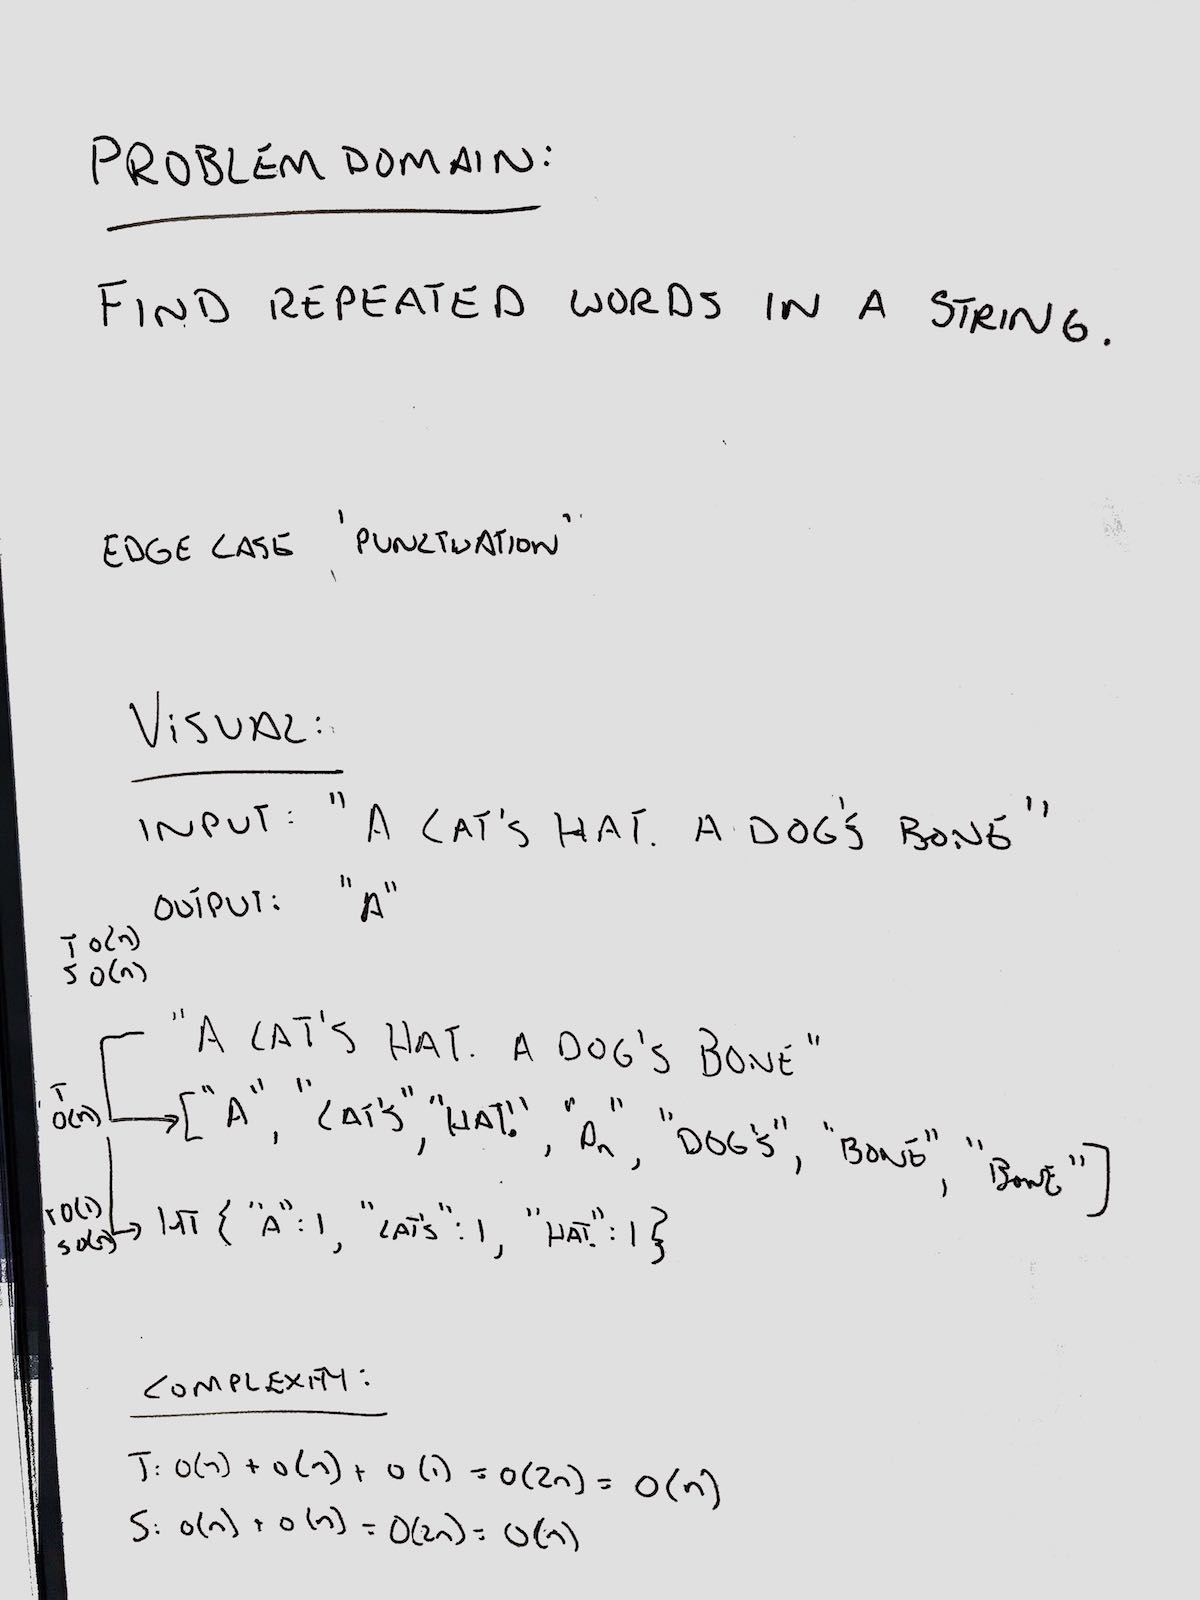 PROBLEM DOMAIN:
FIND REPEATED WORDS IN A STRING.
EDGE CASE 'PUNCTUATION"
VISUAL:
INPUT: "A CAT'S HAT. A DOG'S BONE"
OUTPUT: "A"
T O(n)
S O(n)
"A CAT'S HAT. A DOG'S BONE"
T
O(n)
["A", "CAT'S", "HAT.", "A", "DOG'S", "BONE", "BONE"]
T O(1)
S O(n)
HT { "A":1, "CAT'S":1, "HAT.":1 }
COMPLEXITY:
T: O(n) + O(n) + O(1) = O(2n) = O(n)
S: O(n) + O(n) = O(2n) = O(n)